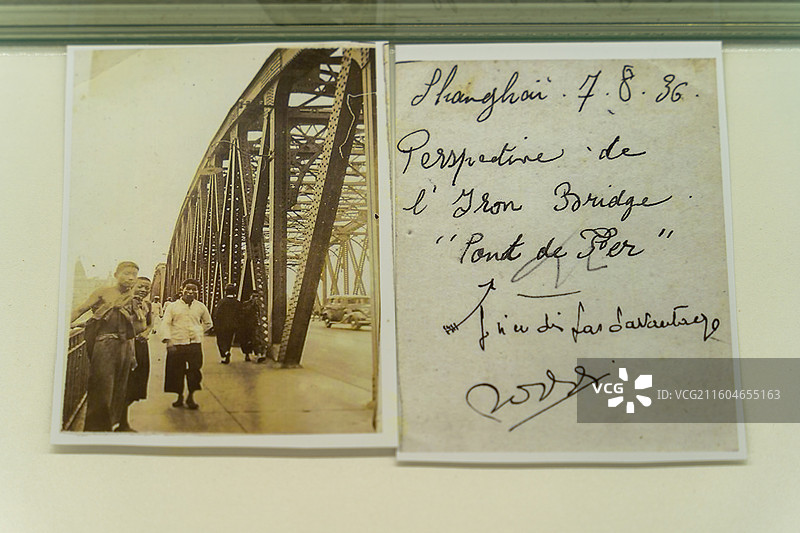 Shanghaï . 7. 8. 36.
Perspective de
l'Iron Bridge .
"Pont de Fer"
J'n'en dis pas davantage
VCG ID: VCG211604655163